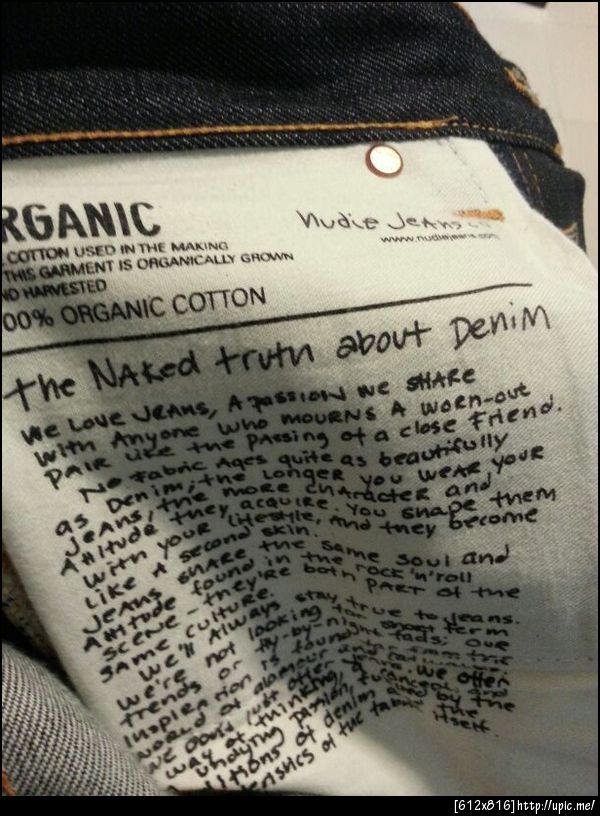 RGANIC
COTTON USED IN THE MAKING
THIS GARMENT IS ORGANICALLY GROWN
ND HARVESTED
00% ORGANIC COTTON
Nudie Jeans co
www.nudiejeans.com
the Naked truth about Denim
We Love Jeans, A passion we share
with Anyone who mourns a worn-out
pair like the passing of a close friend.
No fabric Ages quite as beautifully
as Denim; the longer you wear your
Jeans, the more character and
Attitude they acquire. You shape them
with your lifestyle, and they become
Like A second skin.
Jeans share the same soul and
Attitude found in the rock'n'roll
scene - they're both part of the
same culture.
We'll Always stay true to Jeans.
We're not looking for short term
trends or fly-by-night fads; our
inspiration is found far from the
world of glamour and
We don't just offer jeans. We offer
way of thinking,
undying passion, fueled by the
itions of denim and the
eristics of the fabric itself.